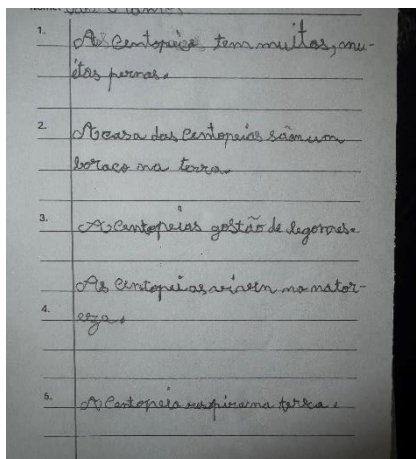 1. As centopeias tem muitas, mu-
itas pernas.
2. A casa das centopeias são um
boraco na terra.
3. A Centopeias gostão de legomes.
As centopeias vivem na nator-
4. eza.
5. A Centopeia respira na terra.